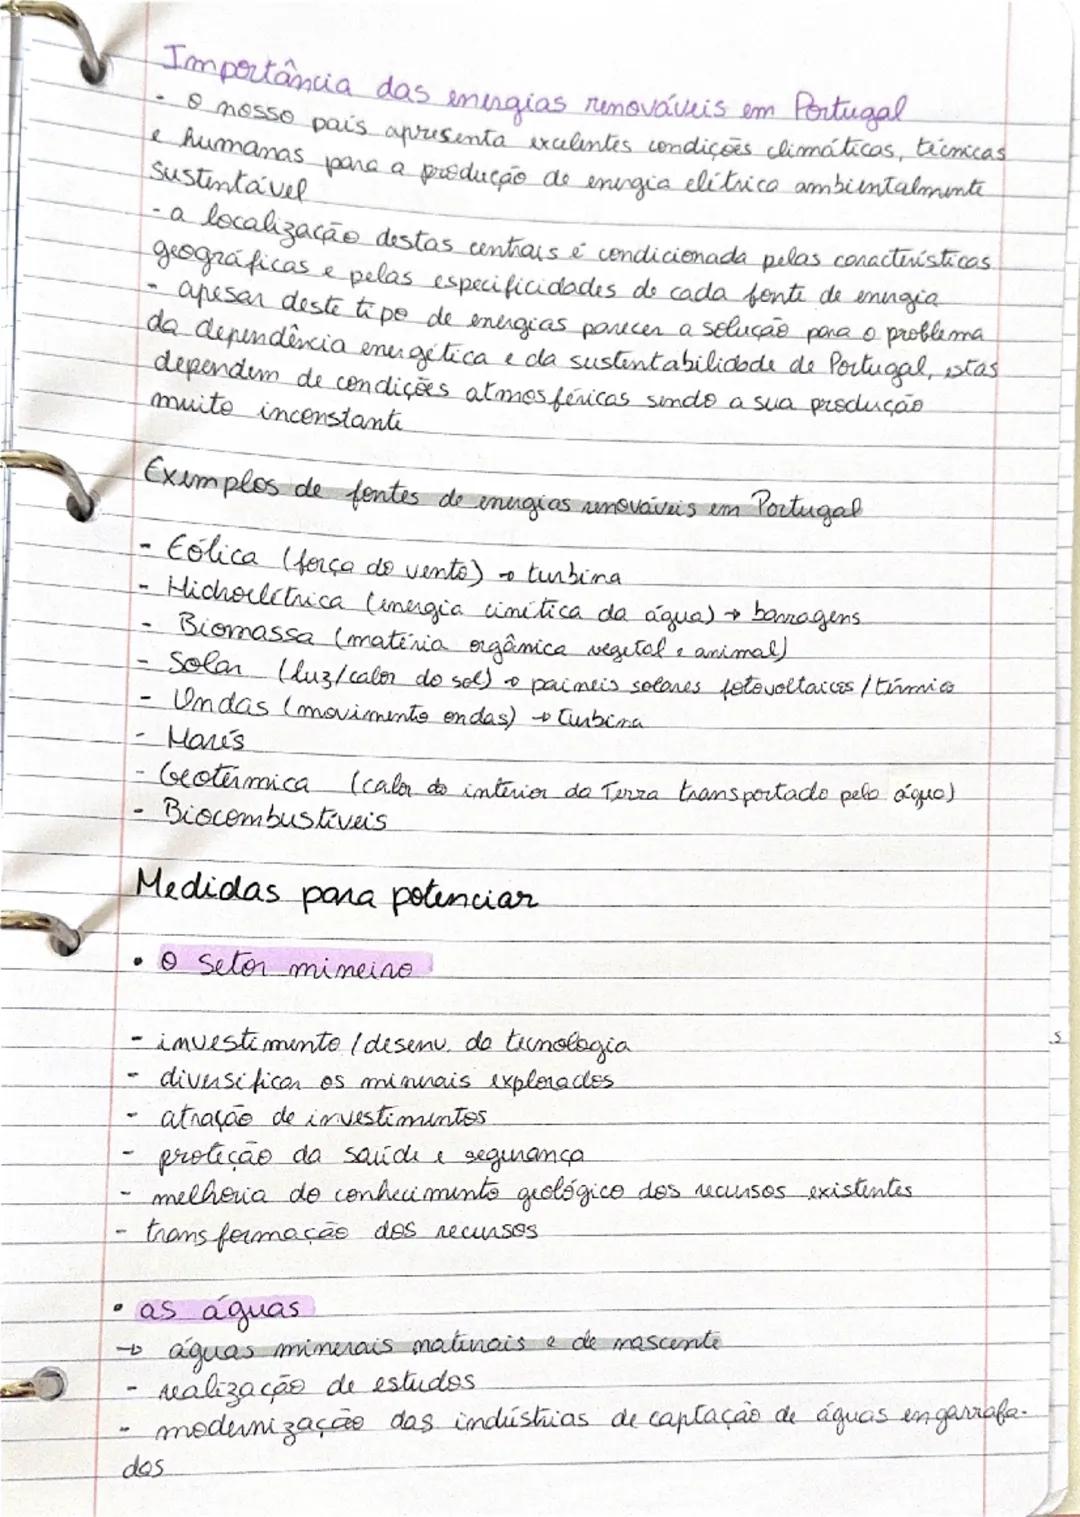 Importância das energias renováveis em Portugal
- o nosso país apresenta excelentes condições climáticas, técnicas
e humanas para a produção de energia elétrica ambientalmente
sustentável
- a localização destas centrais é condicionada pelas características
geográficas e pelas especificidades de cada fonte de energia
- apesar deste tipo de energias parecer a solução para o problema
da dependência energética e da sustentabilidade de Portugal, estas
dependem de condições atmosféricas sendo a sua produção
muito inconstante
Exemplos de fontes de energias renováveis em Portugal
- Eólica (força do vento) → turbina
- Hidroelétrica (energia cinética da água) → barragens
- Biomassa (matéria orgânica vegetal e animal)
- Solar (luz/calor do sol) → paineis solares fotovoltaicos/térmico
- Ondas (movimento ondas) → turbina
- Marés
- Geotérmica (calor do interior da Terra transportado pelo água)
- Biocombustíveis
Medidas para potenciar
• o setor mineiro
- investimento / desenv. da tecnologia
- diversificar os minerais explorados
- atração de investimentos
- proteção da saúde e segurança
- melhoria do conhecimento geológico dos recursos existentes
- transformação dos recursos
• as águas
→ águas minerais naturais e de nascente
- realização de estudos
- modernização das indústrias de captação de águas engarrafa-
das